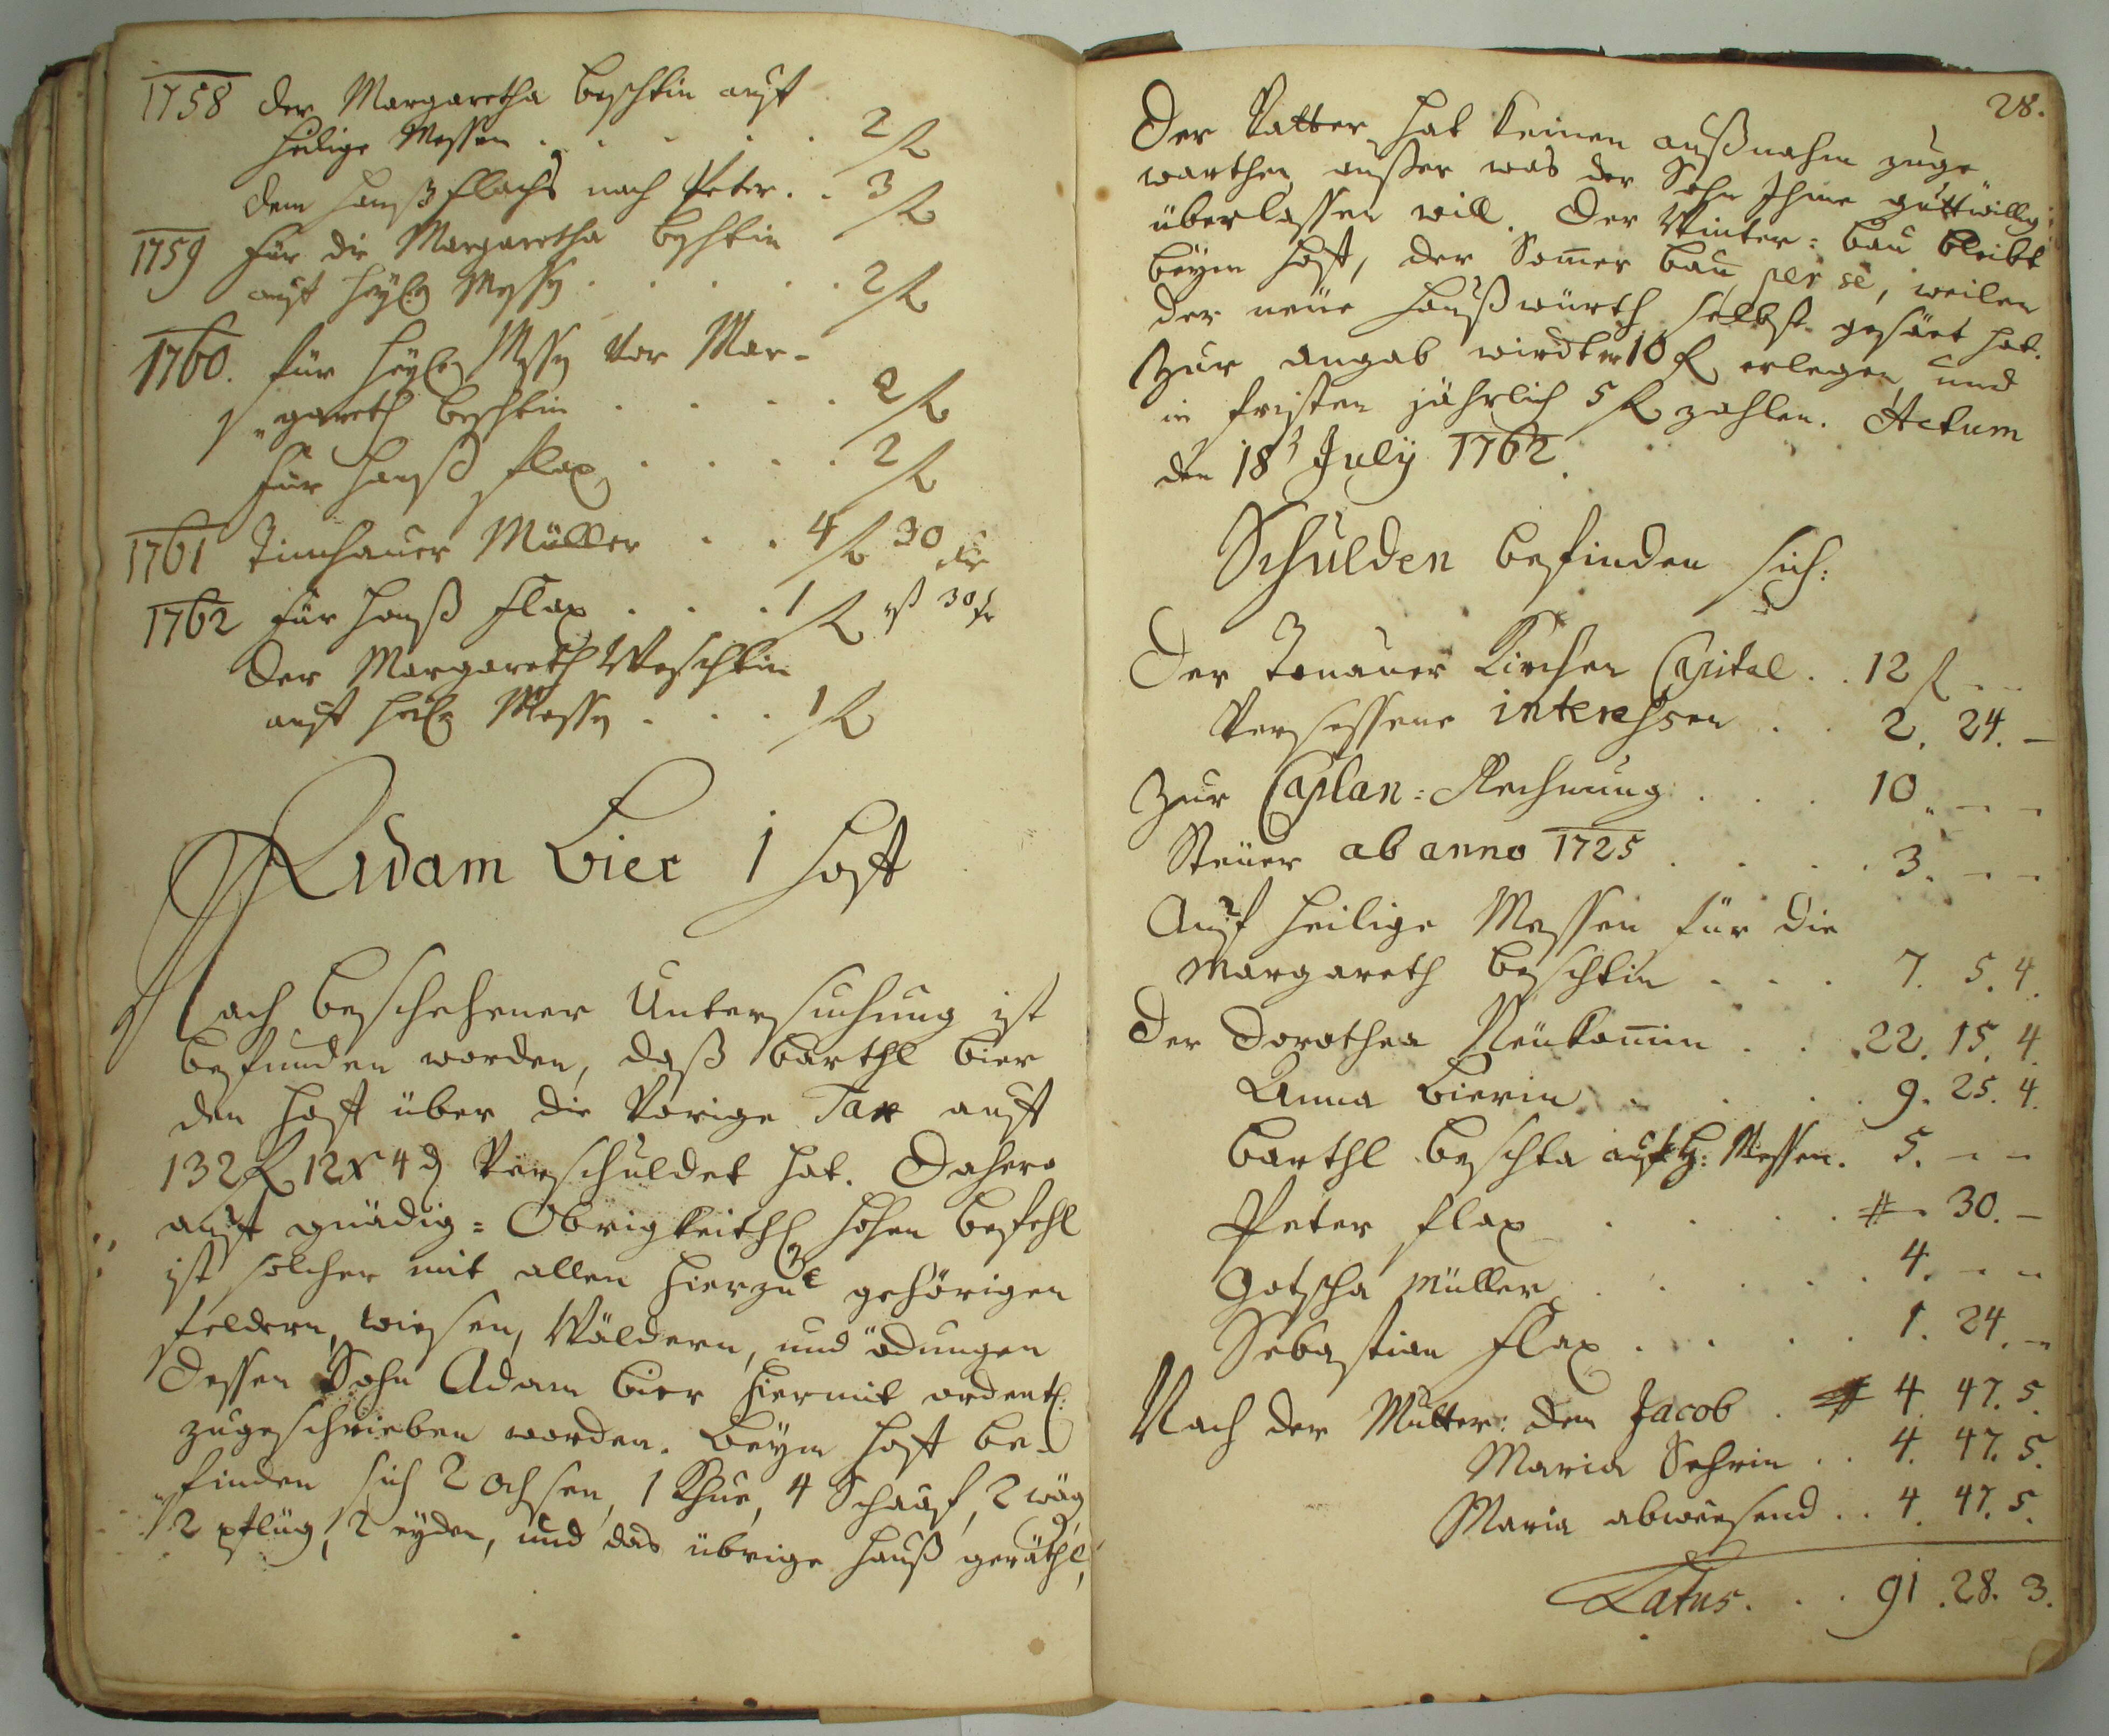 1758 der Margaretha Beschtin auf
heilige Messen . . . . . 2 fl
dem Hanß Flachs nach Peter . . 3 fl
1759 für die Margaretha Beschtin
auf heyl. Messen . . . . . 2 fl
1760. für heyl. Messen vor Mar-
gareth Beschtin . . . . 2 fl
für Hanß Flax . . . . 2 fl
1761 Müller . . 4 fl 30 kr
1762 für Hanß Flax . . . 1 fl 30 kr
der Margareth Weschtin
auf heil. Messen . . . 1 fl
Adam Bier 1 Hoff
Nach beschehener Untersuchung ist
befunden worden, daß Barthl Bier
den Hoff über die Vorige Tax auff
132 fl 12 x 4 d Verschuldet hat. Dahero
auff gnädig=Obrigkeithl. hohen befehl
ist solcher mit allen hierzue gehörigen
feldern, wiesen, Wäldern, und ödungen
dessen Sohn Adam Bier hiermit ordentl:
zugeschrieben worden. Beym Hoff be-
finden sich 2 Ochsen, 1 Khue, 4 Schaaf, 2 wäg,
2 pflüg, 2 eyden, und das übrige hauß geräthl,
28.
Der Vatter hat keinen außnahm zuge
warthen, ausser was der Sohn Ihme guttwillig
überlassen will. Der Winter=bau bleibt
beym Hoff, der Somer bau per se, weilen
der neüe haußwürth selbst gesäet hat.
Zur angab wirdt er 10 fl erlegen, und
in fristen jährlich 5 fl zahlen. Actum
den 18t July 1762.
Schulden befinden sich:
Der Tonauer Kirchen Capital . . 12 fl - -
Versessene interehsen . . 2. 24. -
Zur Caplan=Rechnung . . . 10. - -
Steüer ab anno 1725 . . . . 3. - -
Auf heilige Messen für die
Margareth Beschtin . . . 7. 5. 4.
Der Dorothea Neükomin . . . 22. 15. 4.
Anna Bierin . . . . 9. 25. 4.
Barthl Beschta auf H: Messen. 5. - -
Peter Flax . . . . - 30. -
Gotscha Müller . . . . . 4. - -
Sebastian Flax . . . . 1. 24. -
Nach der Mutter: dem Jacob . 4. 47. 5.
Maria Sehrin . . 4. 47. 5.
Maria abwesend . . 4. 47. 5.
Latus. . . 91. 28. 3.